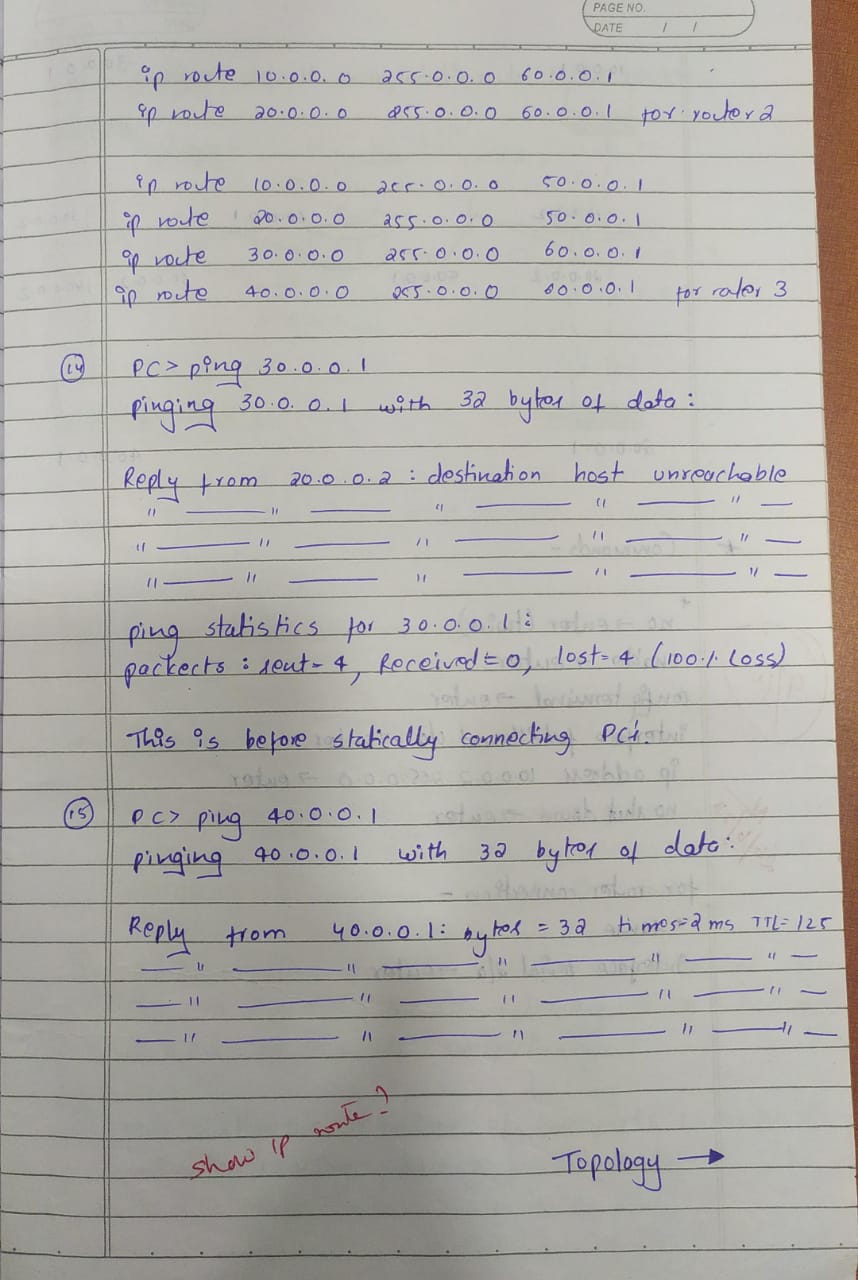 PAGE NO.
DATE / /
ip route 10.0.0.0 255.0.0.0 60.0.0.1
ip route 20.0.0.0 255.0.0.0 60.0.0.1 for router 2
ip route 10.0.0.0 255.0.0.0 50.0.0.1
ip route 20.0.0.0 255.0.0.0 50.0.0.1
ip route 30.0.0.0 255.0.0.0 60.0.0.1
ip route 40.0.0.0 255.0.0.0 60.0.0.1 for roter 3
14 PC> ping 30.0.0.1
pinging 30.0.0.1 with 32 bytes of data:
Reply from 20.0.0.2 : destination host unreachable
" — " — " — " — " —
" — " — " — " — " —
" — " — " — " — " —
ping statistics for 30.0.0.1:
packects : sent = 4, Received = 0, lost = 4 (100% Loss)
This is before statically connecting PC's.
15 PC> ping 40.0.0.1
pinging 40.0.0.1 with 32 bytes of data:
Reply from 40.0.0.1: bytes = 32 times=2ms TTL=125
— " — " — " — " — " —
— " — " — " — " — " —
— " — " — " — " — " —
show ip route?
Topology →